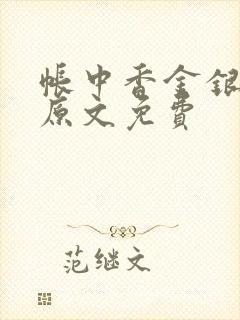 帐中香金银
原文免费
范继文